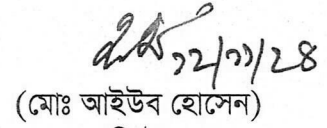 ১২/১১/২৪
(মোঃ আইউব হোসেন)